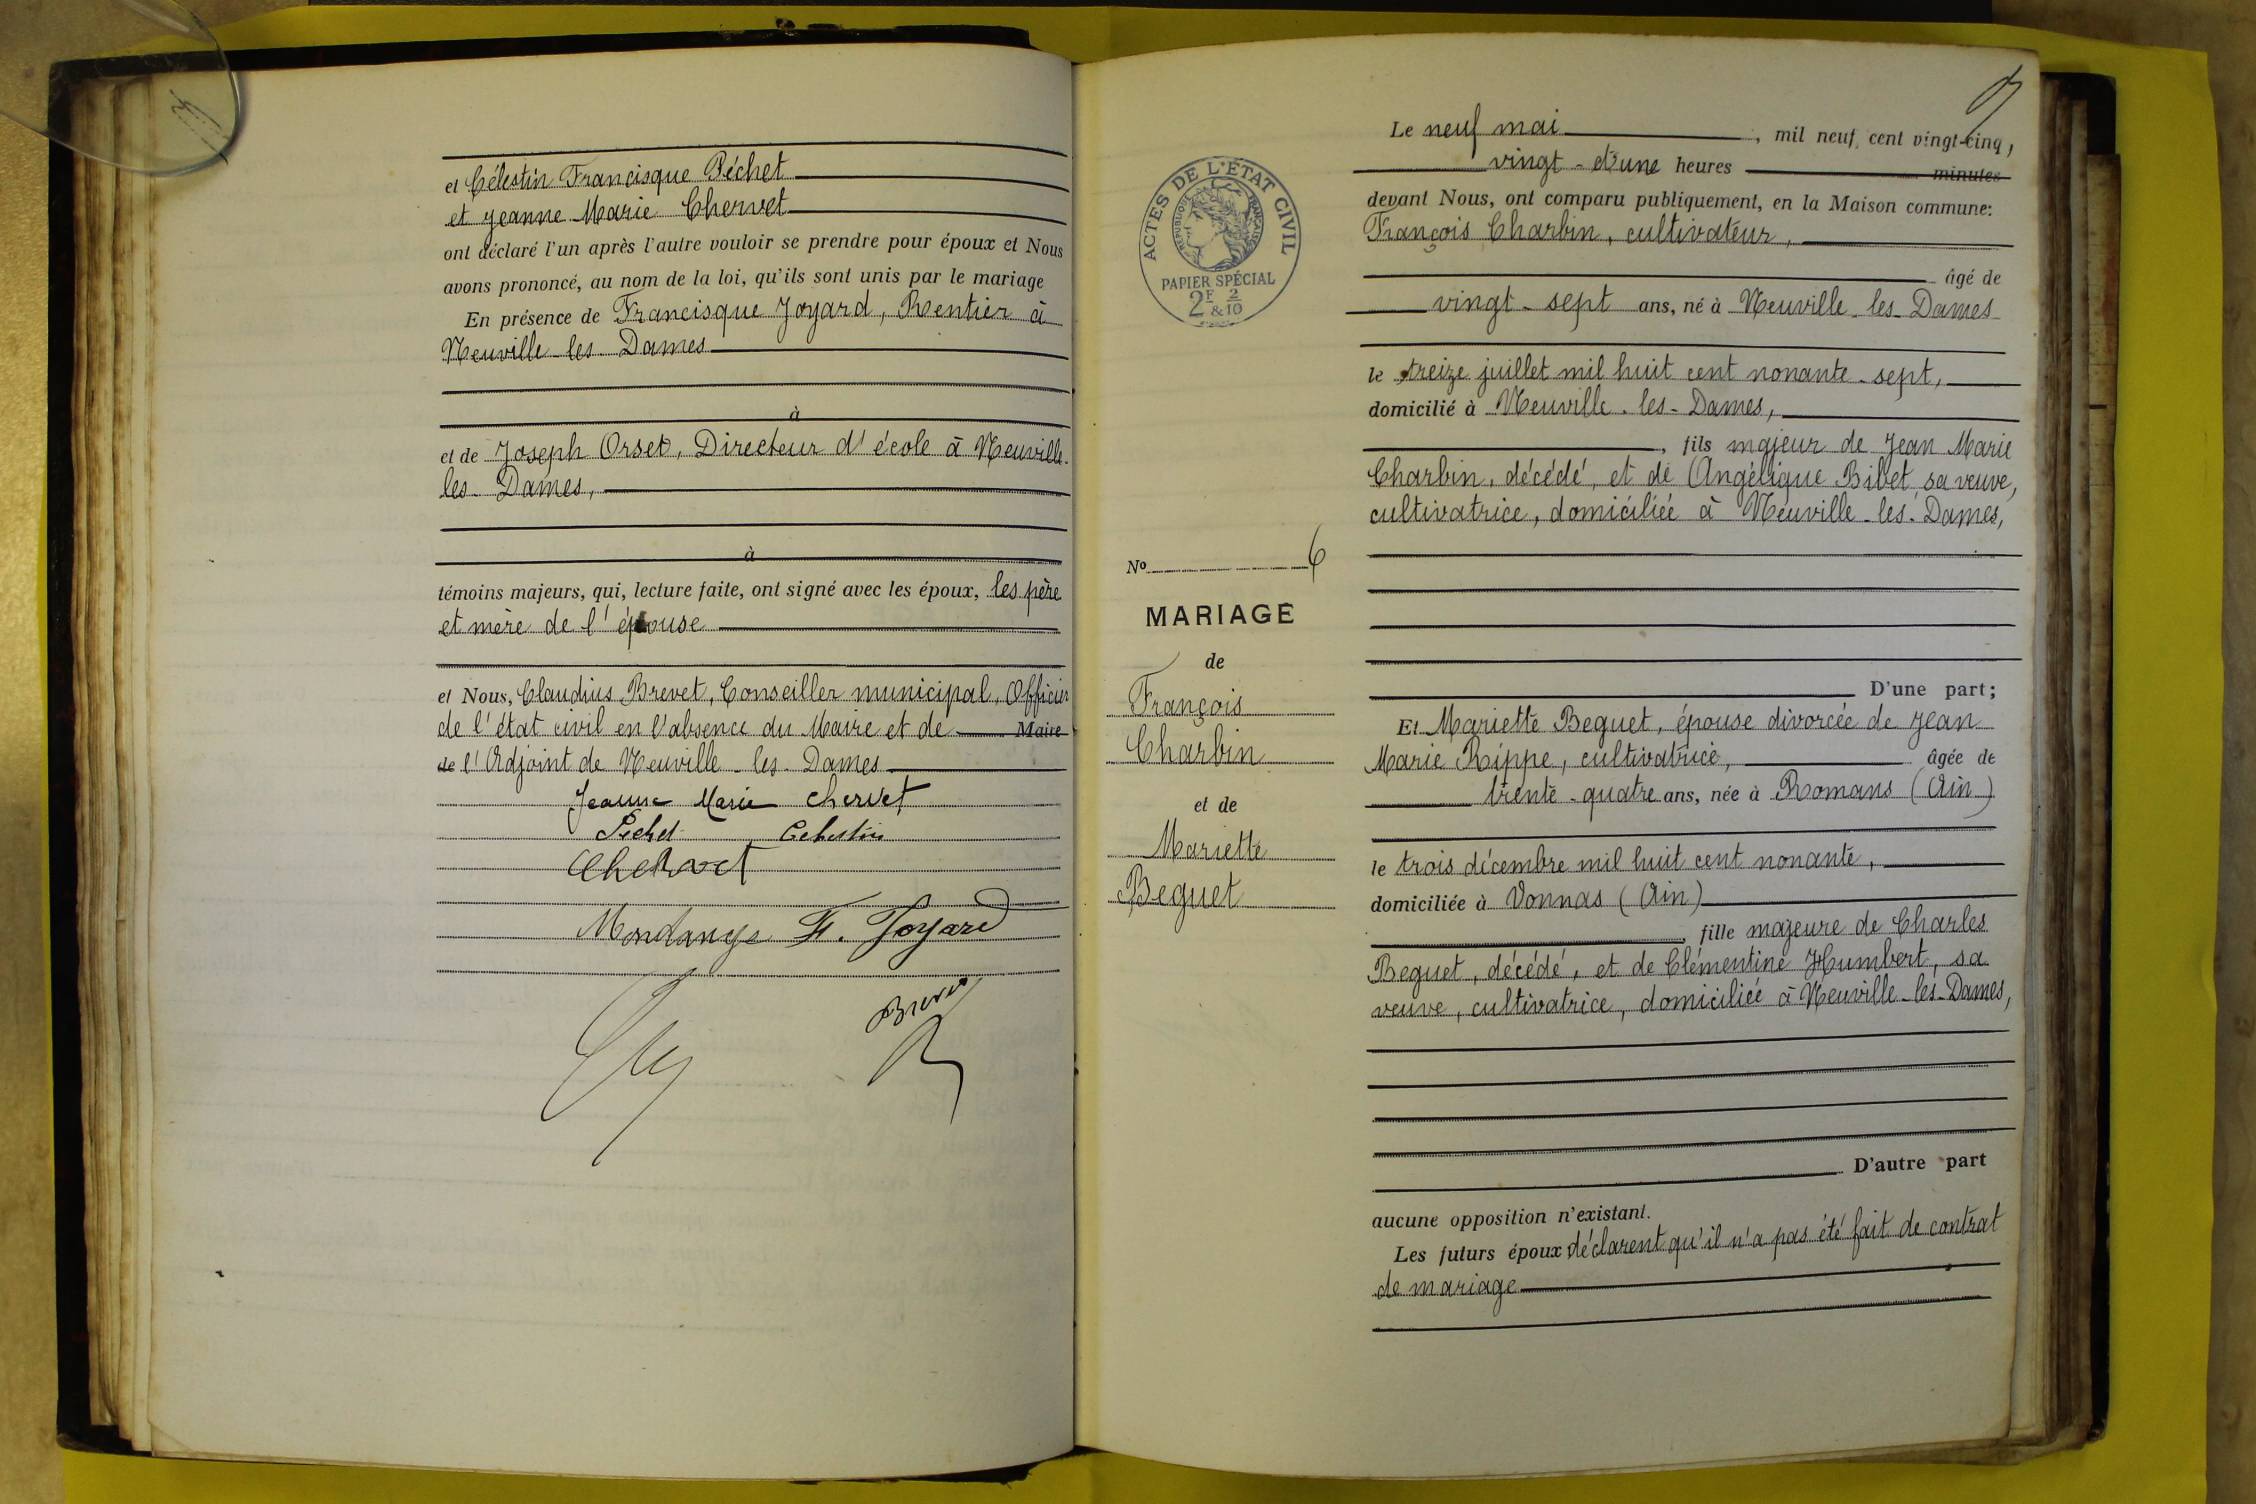 et Célestin Francisque Péchet
et Jeanne Marie Chervet
ont déclaré l'un après l'autre vouloir se prendre pour époux et Nous
avons prononcé, au nom de la loi, qu'ils sont unis par le mariage
En présence de Francisque Joyard, Rentier à
Neuville les Dames
à
et de Joseph Orset, Directeur d'école à Neuville
les Dames,
à
témoins majeurs, qui, lecture faite, ont signé avec les époux, les père
et mère de l'épouse
et Nous, Claudius Brevet, Conseiller municipal, Officier
de l'état civil en l'absence du Maire et de Maire
de l'Adjoint de Neuville les Dames
Jeanne Marie Chervet
Péchet Célestin
Chervet
Mondange F. Joyard
Brevet
ACTES DE L'ÉTAT CIVIL
RÉPUBLIQUE FRANÇAISE
PAPIER SPÉCIAL
2F & 2/10
No 6
MARIAGE
de
François
Charbin
et de
Mariette
Beguet
Le neuf mai, mil neuf cent vingt-cinq,
vingt-et-une heures minutes
devant Nous, ont comparu publiquement, en la Maison commune:
François Charbin, cultivateur,
âgé de
vingt-sept ans, né à Neuville-les-Dames
le treize juillet mil huit cent nonante-sept,
domicilié à Neuville-les-Dames,
, fils majeur de Jean Marie
Charbin, décédé, et de Angélique Bibet, sa veuve,
cultivatrice, domiciliée à Neuville-les-Dames,
D'une part;
Et Mariette Beguet, épouse divorcée de Jean
Marie Rippe, cultivatrice, âgée de
trente-quatre ans, née à Romans (Ain)
le trois décembre mil huit cent nonante,
domiciliée à Vonnas (Ain)
, fille majeure de Charles
Beguet, décédé, et de Clémentine Humbert, sa
veuve, cultivatrice, domiciliée à Neuville-les-Dames,
D'autre part
aucune opposition n'existant.
Les futurs époux déclarent qu'il n'a pas été fait de contrat
de mariage